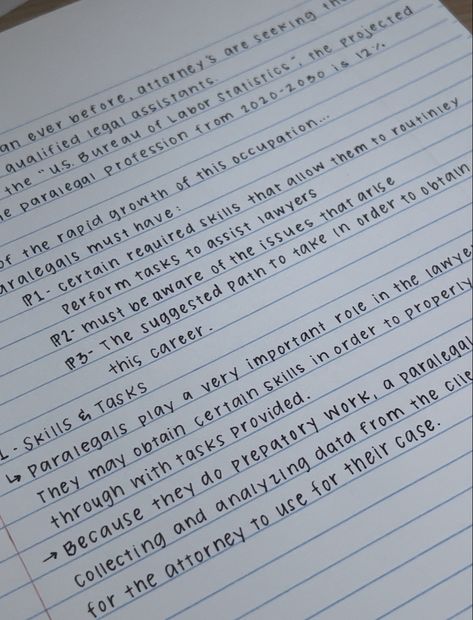 an ever before, attorney's are seeking the
qualified legal assistants.
the "U.S. Bureau of Labor Statistics", the projected
e Paralegal Profession from 2020-2030 is 12%
of the rapid growth of this occupation...
aralegals must have:
P1- certain required skills that allow them to routinley
perform tasks to assist lawyers
P2- must be aware of the issues that arise
P3- The suggested path to take in order to obtain
this career.
1.- Skills & Tasks
↳ Paralegals play a very important role in the lawye
They may obtain certain skills in order to properly
through with tasks provided.
→ Because they do prepatory work, a paralegal
collecting and analyzing data from the clie
for the attorney to use for their case.